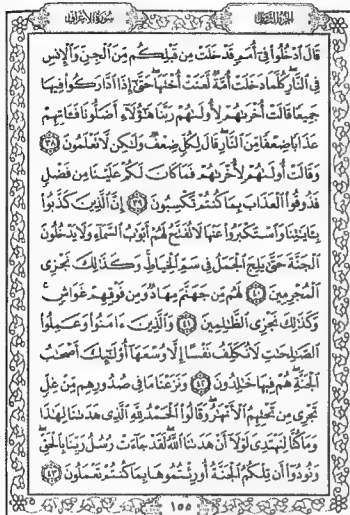 سُورَةُ الأَعۡرَافِ الجُزءُ الثَّامِنُ
قَالَ ٱدۡخُلُواْ فِيٓ أُمَمٖ قَدۡ خَلَتۡ مِن قَبۡلِكُم مِّنَ ٱلۡجِنِّ وَٱلۡإِنسِ
فِي ٱلنَّارِۖ كُلَّمَا دَخَلَتۡ أُمَّةٞ لَّعَنَتۡ أُخۡتَهَاۖ حَتَّىٰٓ إِذَا ٱدَّارَكُواْ فِيهَا
جَمِيعٗا قَالَتۡ أُخۡرَىٰهُمۡ لِأُولَىٰهُمۡ رَبَّنَا هَٰٓؤُلَآءِ أَضَلُّونَا فَـَٔاتِهِمۡ
عَذَابٗا ضِعۡفٗا مِّنَ ٱلنَّارِۖ قَالَ لِكُلّٖ ضِعۡفٞ وَلَٰكِن لَّا تَعۡلَمُونَ ٣٨
وَقَالَتۡ أُولَىٰهُمۡ لِأُخۡرَىٰهُمۡ فَمَا كَانَ لَكُمۡ عَلَيۡنَا مِن فَضۡلٖ
فَذُوقُواْ ٱلۡعَذَابَ بِمَا كُنتُمۡ تَكۡسِبُونَ ٣٩ إِنَّ ٱلَّذِينَ كَذَّبُواْ
بِـَٔايَٰتِنَا وَٱسۡتَكۡبَرُواْ عَنۡهَا لَا تُفَتَّحُ لَهُمۡ أَبۡوَٰبُ ٱلسَّمَآءِ وَلَا يَدۡخُلُونَ
ٱلۡجَنَّةَ حَتَّىٰ يَلِجَ ٱلۡجَمَلُ فِي سَمِّ ٱلۡخِيَاطِۚ وَكَذَٰلِكَ نَجۡزِي
ٱلۡمُجۡرِمِينَ ٤٠ لَهُم مِّن جَهَنَّمَ مِهَادٞ وَمِن فَوۡقِهِمۡ غَوَاشٖۚ
وَكَذَٰلِكَ نَجۡزِي ٱلظَّٰلِمِينَ ٤١ وَٱلَّذِينَ ءَامَنُواْ وَعَمِلُواْ
ٱلصَّٰلِحَٰتِ لَا نُكَلِّفُ نَفۡسًا إِلَّا وُسۡعَهَآ أُوْلَٰٓئِكَ أَصۡحَٰبُ
ٱلۡجَنَّةِۖ هُمۡ فِيهَا خَٰلِدُونَ ٤٢ وَنَزَعۡنَا مَا فِي صُدُورِهِم مِّنۡ غِلّٖ
تَجۡرِي مِن تَحۡتِهِمُ ٱلۡأَنۡهَٰرُۖ وَقَالُواْ ٱلۡحَمۡدُ لِلَّهِ ٱلَّذِي هَدَىٰنَا لِهَٰذَا
وَمَا كُنَّا لِنَهۡتَدِيَ لَوۡلَآ أَنۡ هَدَىٰنَا ٱللَّهُۖ لَقَدۡ جَآءَتۡ رُسُلُ رَبِّنَا بِٱلۡحَقِّۖ
وَنُودُوٓاْ أَن تِلۡكُمُ ٱلۡجَنَّةُ أُورِثۡتُمُوهَا بِمَا كُنتُمۡ تَعۡمَلُونَ ٤٣
١٥٥